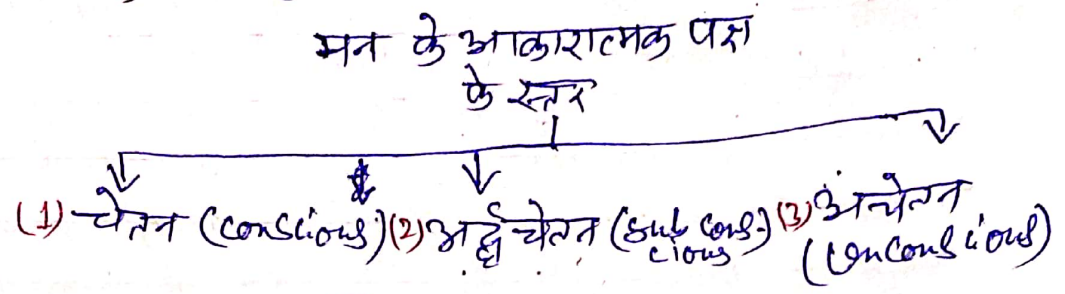 मन के आकारात्मक पक्ष
के स्तर
(1) चेतन (conscious) (2) अर्द्धचेतन (sub cons-cious) (3) अंचेतन (unconscious)